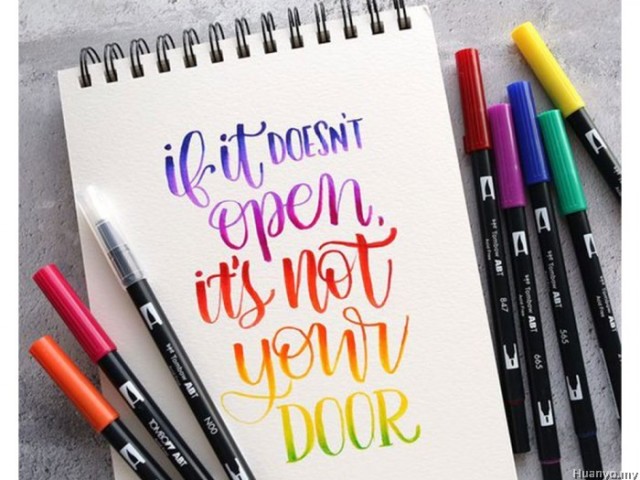 if it DOESN'T
open,
it's not
your
DOOR
Tombow ABT
N00
TOMBOW ABT
Tombow ABT
847
Tombow ABT
665
Tombow ABT
565
Huanyo.my